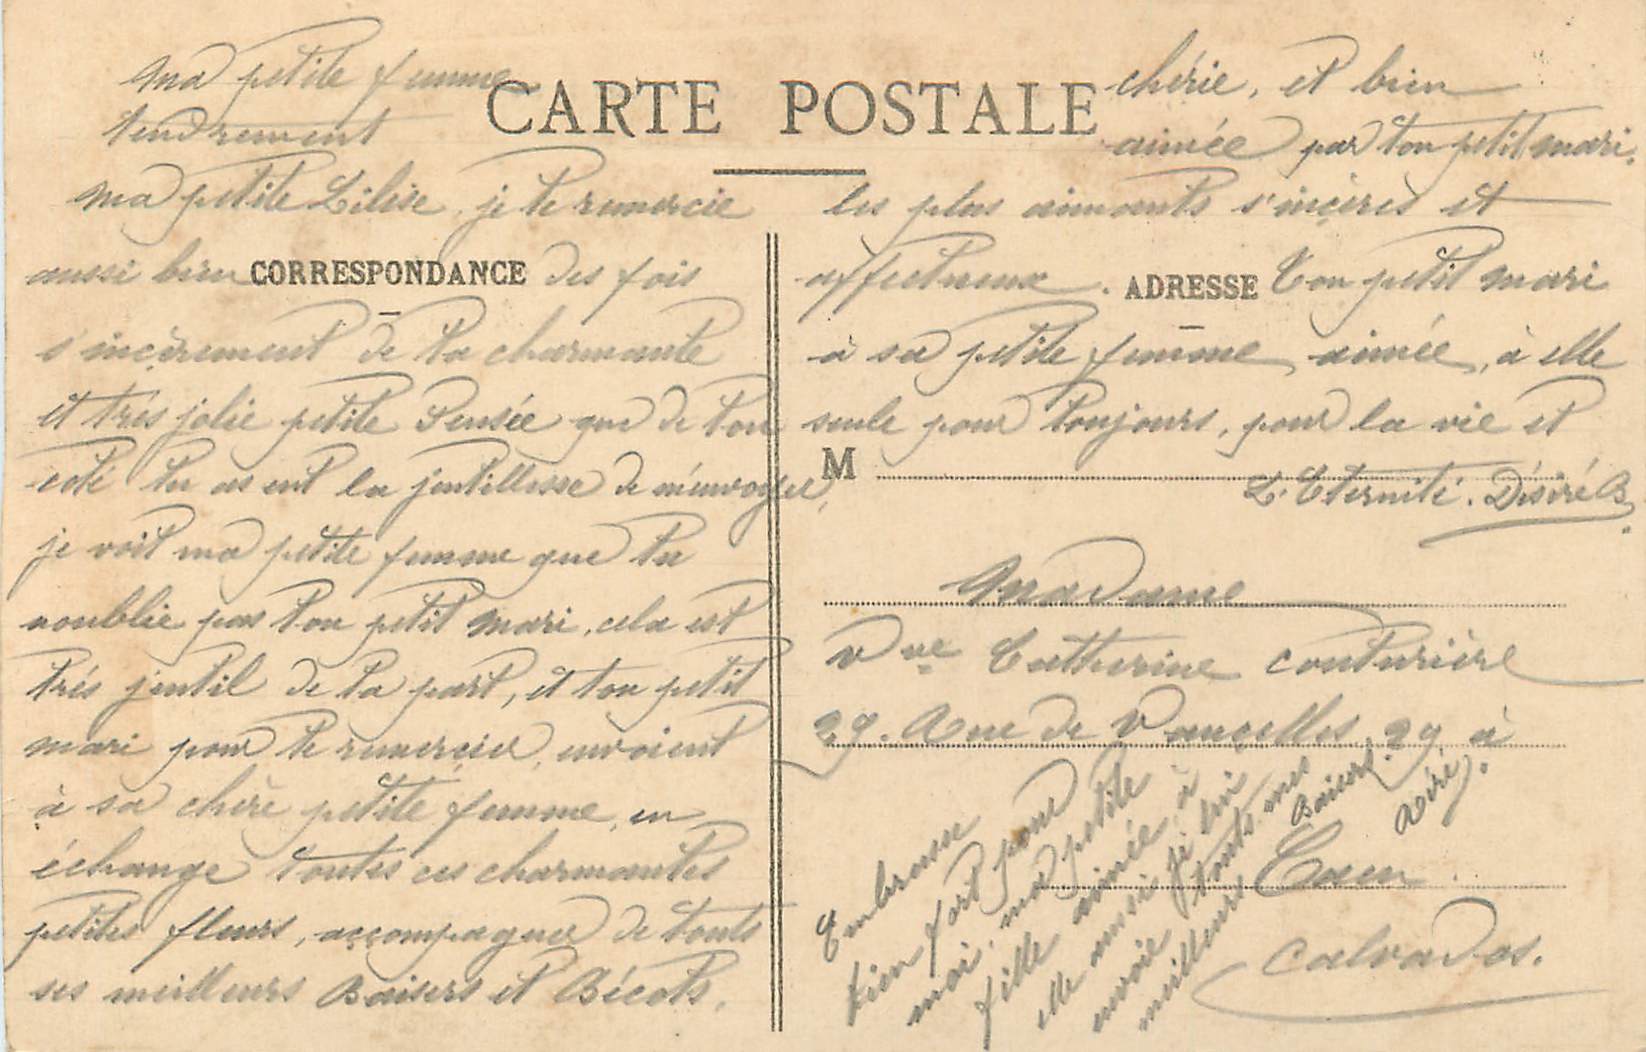 ma petite femme
tendrement
CARTE POSTALE
chérie, et bien
aimée par ton petit mari.
ma petite Lilise, je te remercie
aussi bien des fois
CORRESPONDANCE
s'inçèrement de ta charmante
et trés jolie petite Pensée que de ton
coté tu as eut la jentillesse de m'envoyer,
je voit ma petite femme que tu
noublie pas ton petit mari, cela est
trés jentil de ta part, et ton petit
mari pour te remerçier, envoient
à sa chère petite femme, en
échange toutes ces charmantes
petites fleurs, accompagner de touts
ses meilleurs Baisers et Bécots.
les plus aimants s'inçères et
affectueux. Ton petit mari
ADRESSE
à sa petite femme aimée, à elle
seule pour toujours, pour la vie et
M
L'Eternité. Désiré B.
Madame
Vve Catherine couturière
29. Rue de Vauçelles, 29 à
Caen
Calvados.
Embrasse
bien fort pour
moi, ma petite
fille aimée, à
elle aussi je lui
envoie touts mes
meilleurs Baisers.